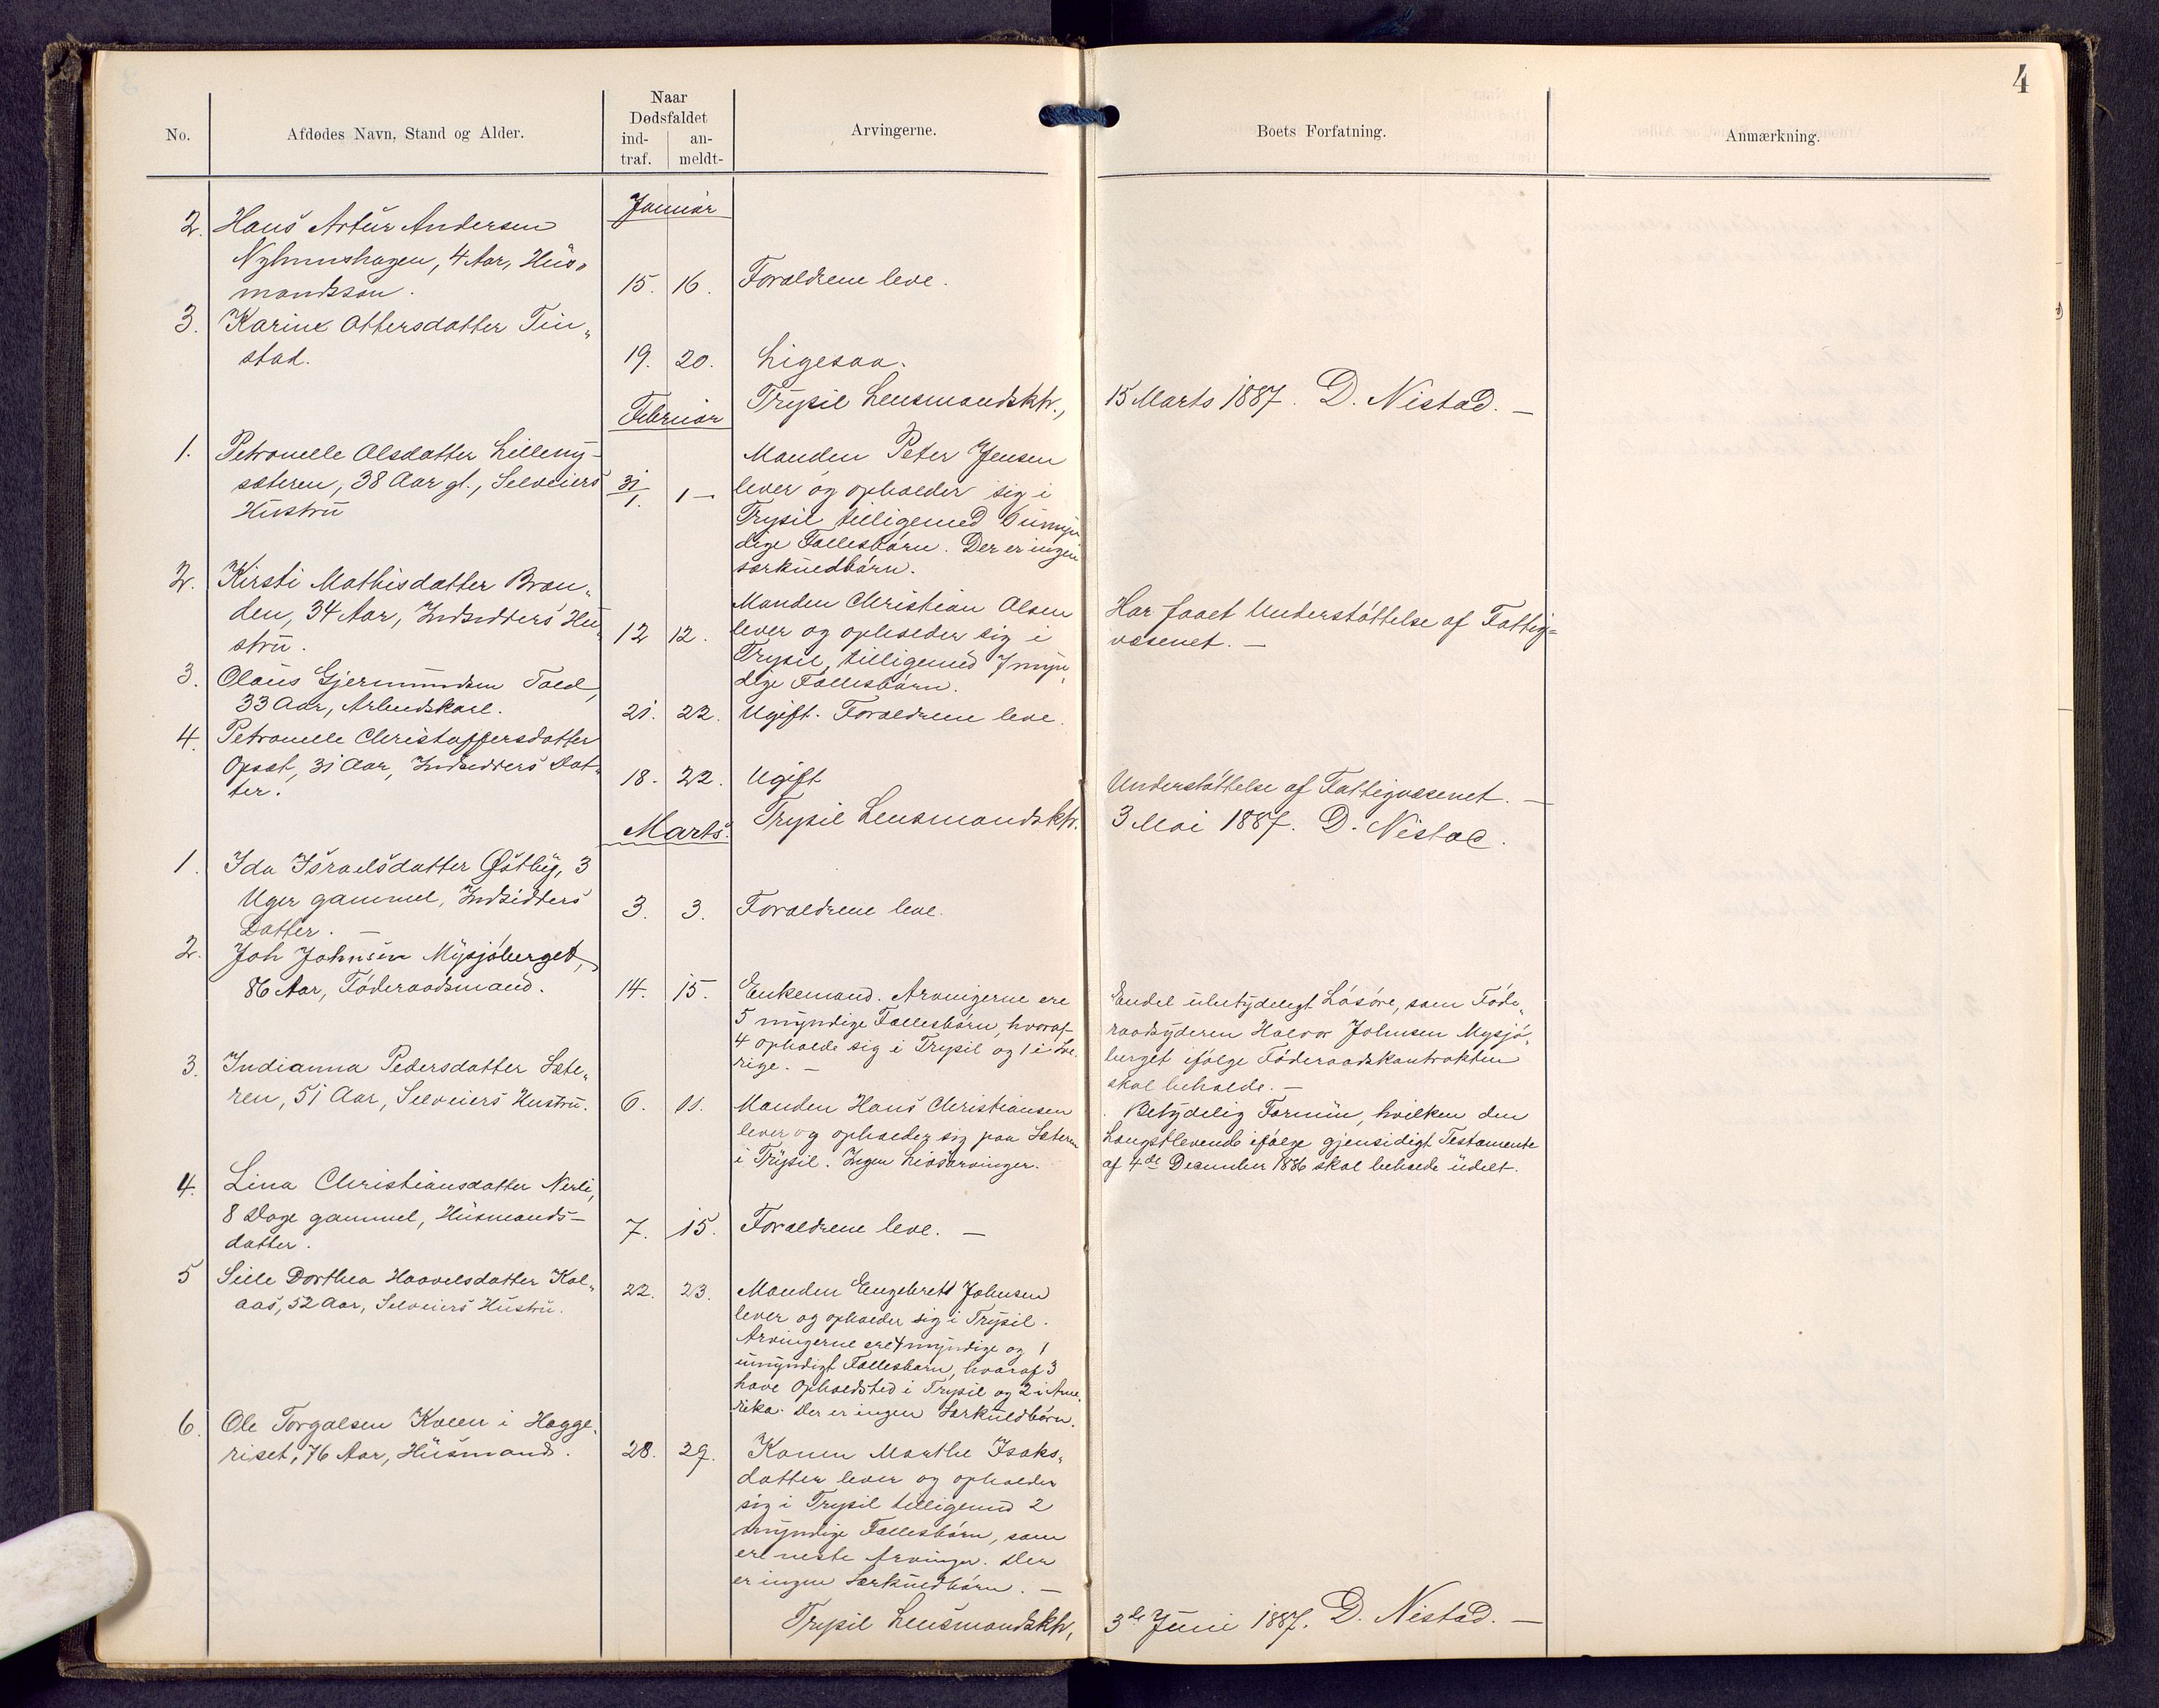 4
No.
Afdødes Navn, Stand og Alder.
Naar
Dødsfaldet
ind-
traf.
an-
meldt-
Arvingerne.
Boets Forfatning.
Anmærkning.
Januar
2. Hans Artur Andersen
Nyhuushagen, 4 Aar, Hus„
mandssøn. 15. 16. Forældrene leve.
3. Karine Ottersdatter Tin„
stad. 19. 20. Ligesaa.
Trysil Lensmandsktr., 15 Marts 1887. D. Nistad. —
Februar
1. Petronelle Olsdatter Lilleny-
sæteren, 38 Aar gl., Selveiers
Hustru
31/1. 1 —
Manden Peter Jensen
lever og opholder sig i
Trysil tilligemed 6 umyn
dige Fællesbørn. Der er ingen
særkuldbørn.
2. Kirsti Mathisdatter Bræn„
den, 34 Aar, Indsidders Hu„
stru.
12 12.
Manden Christian Olsen
lever og opholder sig i
Trysil, tilligemed 7 myn„
dige Fællesbørn.
Har faaet Understøttelse af Fattig=
væsenet. —
3. Olaus Gjermundsen Tæld,
33 Aar, Arbeidskarl. 21. 22. Ugift. Forældrene leve.
4. Petronelle Christoffersdatter
Opsæt, 31 Aar, Indsidders Dat„
ter.
18. 22. Ugift
Understøttelse af Fattigvæsenet. —
Trysil Lensmandsktr. 3 Mai 1887. D. Nistad.
Marts.
1. Ida Israelsdatter Østby, 3
Uger gammel, Indsidders
Datter. —
3. 3. Forældrene leve.
2. Joh Johnsen Mysjøberget,
86 Aar, Føderaadsmand. 14. 15.
Enkemand. Arvingerne ere
5 myndige Fællesbørn, hvoraf
4 opholde sig i Trysil og 1 i Sve„
rige. —
Endel ubetydeligt Løsøre, som Føde„
raadsyderen Halvor Johnsen Mysjø„
berget ifølge Føderaadskontrakten
skal beholde. —
3. Indianna Pedersdatter Sæte„
ren, 51 Aar, Selveiers Hustru. 6. 11.
Manden Hans Christiansen
lever og opholder sig paa Sæteren
i Trysil. Ingen Livsarvinger.
Betydelig Formue, hvilken den
Længstlevende ifølge gjensidigt Testamente
af 4de December 1886 skal beholde udelt.
4. Lina Christiansdatter Nerli,
8 Dage gammel, Husmands-
datter.
7. 15. Forældrene leve. —
5 Sille Dorthea Haavelsdatter Kol„
aas, 52 Aar, Selveiers Hustru. 22. 23.
Manden Engebrett Johnsen
lever og opholder sig i Trysil.
Arvingerne ere 4 myndige og 1
umyndigt Fællesbarn, hvoraf 3
have Opholdsted i Trysil og 2 i Ame„
rika. Der er ingen Særkuldbørn.
6. Ole Torgalsen Kveen i Hagge„
riset, 76 Aar, Husmand. 28. 29.
Konen Marthe Isaks„
datter lever og opholder
sig i Trysil tilligemed 2
myndige Fællesbørn, som
ere neste Arvinger. Der
er ingen Særkuldbørn. —
Trysil Lensmandsktr, 3de Juni 1887. D. Nistad. —